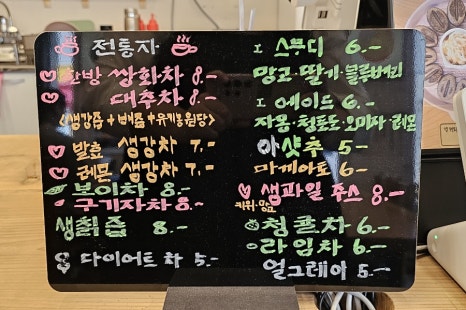 전통차
한방 쌍화차 8.-
대추차 8.-
<생강즙 + 배즙 + 유기농원당>
발효 생강차 7.-
레몬 생강차 7.-
보이차 8.-
구기자차 8.-
생칡즙 8.-
다이어트차 5.-
I 스무디 6.-
망고·딸기·블루베리
I 에이드 6.-
자몽·청포도·오미자·레몬
아샷추 5.-
마끼아또 6.-
생과일 주스 8.-
키위·망고
청귤차 6.-
라임차 6.-
얼그레이 5.-